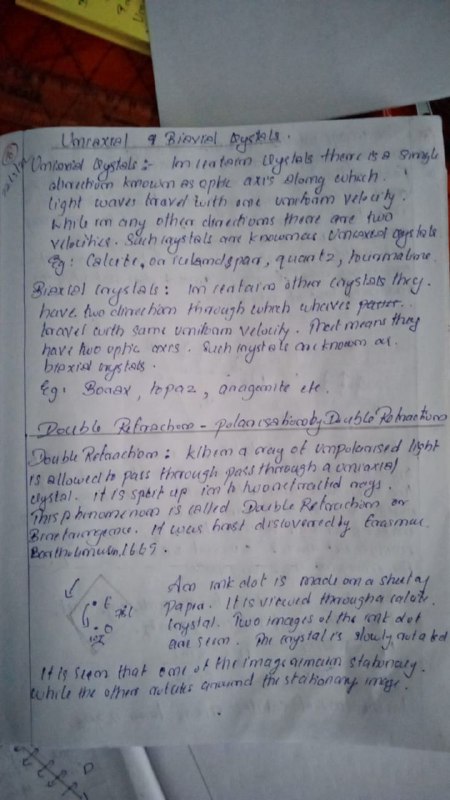 Uniaxial & Biaxial Crystals.
Uniaxial Crystals :- In certain crystals there is a single
direction known as optic axis along which
light waves travel with one uniform velocity.
while in any other directions there are two
velocities. Such crystals are known as Uniaxial crystals
Eg: Calcite, or iceland spar, quartz, tourmaline.
Biaxial crystals : In certain other crystals they
have two direction through which waves
travel with same uniform velocity. That means they
have two optic axis. Such crystals are known as
biaxial crystals.
Eg: Borax, topaz, aragonite etc.
Double Refraction - polarisation by Double Refraction
Double Refraction : When a ray of unpolarised light
is allowed to pass through pass through a uniaxial
crystal. it is split up into two refracted rays.
This phenomenon is called Double Refraction or
Birefringence. It was first discovered by Erasmus
Bartholinus, 1669.
An ink dot is made on a sheet of
paper. It is viewed through a calcite
crystal. Two images of the ink dot
are seen. The crystal is slowly rotated
E
O
It is seen that one of the image remain stationary.
while the other rotates around the stationary image.